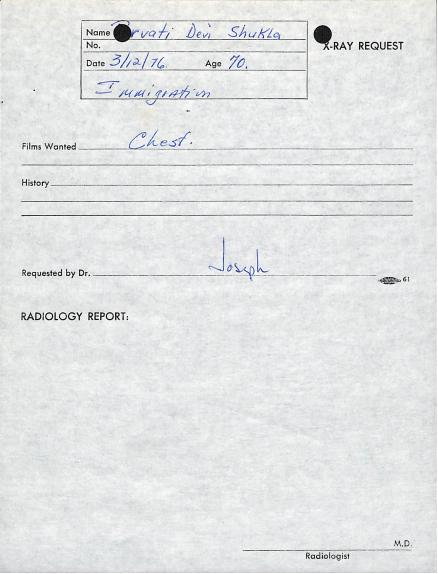 Name Parvati Devi Shukla
X-RAY REQUEST
No.
Date 3/12/76 Age 70.
Immigration
Films Wanted Chest.
History
Requested by Dr. Joseph
61
RADIOLOGY REPORT:
M.D.
Radiologist